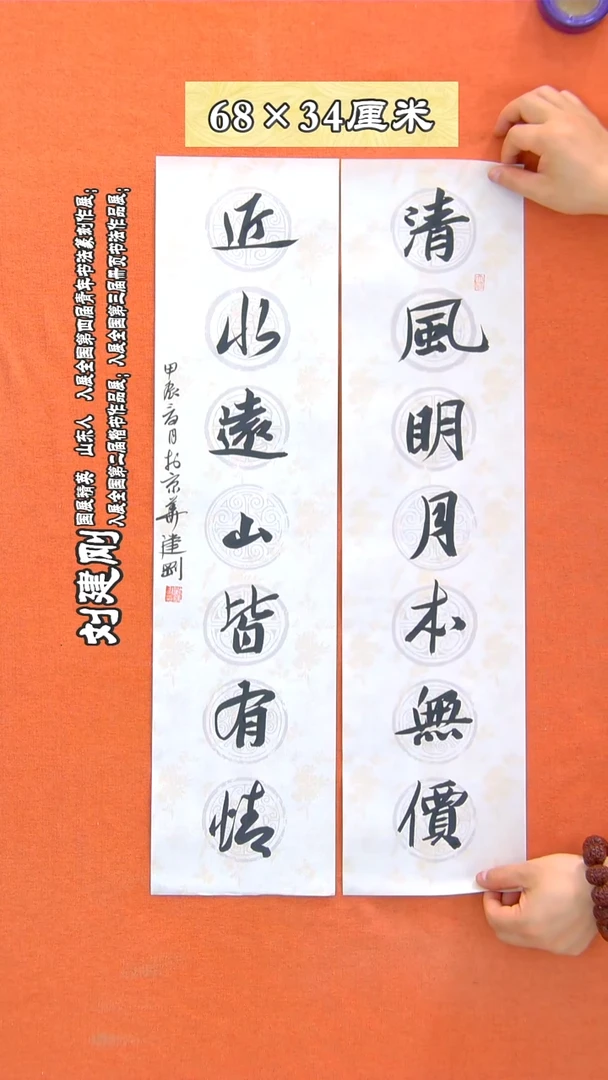 68×34厘米
清風明月本無價
近水遠山皆有情
甲辰春月於京華建剛
刘建刚
国展精英 山东人 入展全国第四届青年书法篆刻作展；
入展全国第二届楷书作品展；入展全国第三届册页书法作品展；